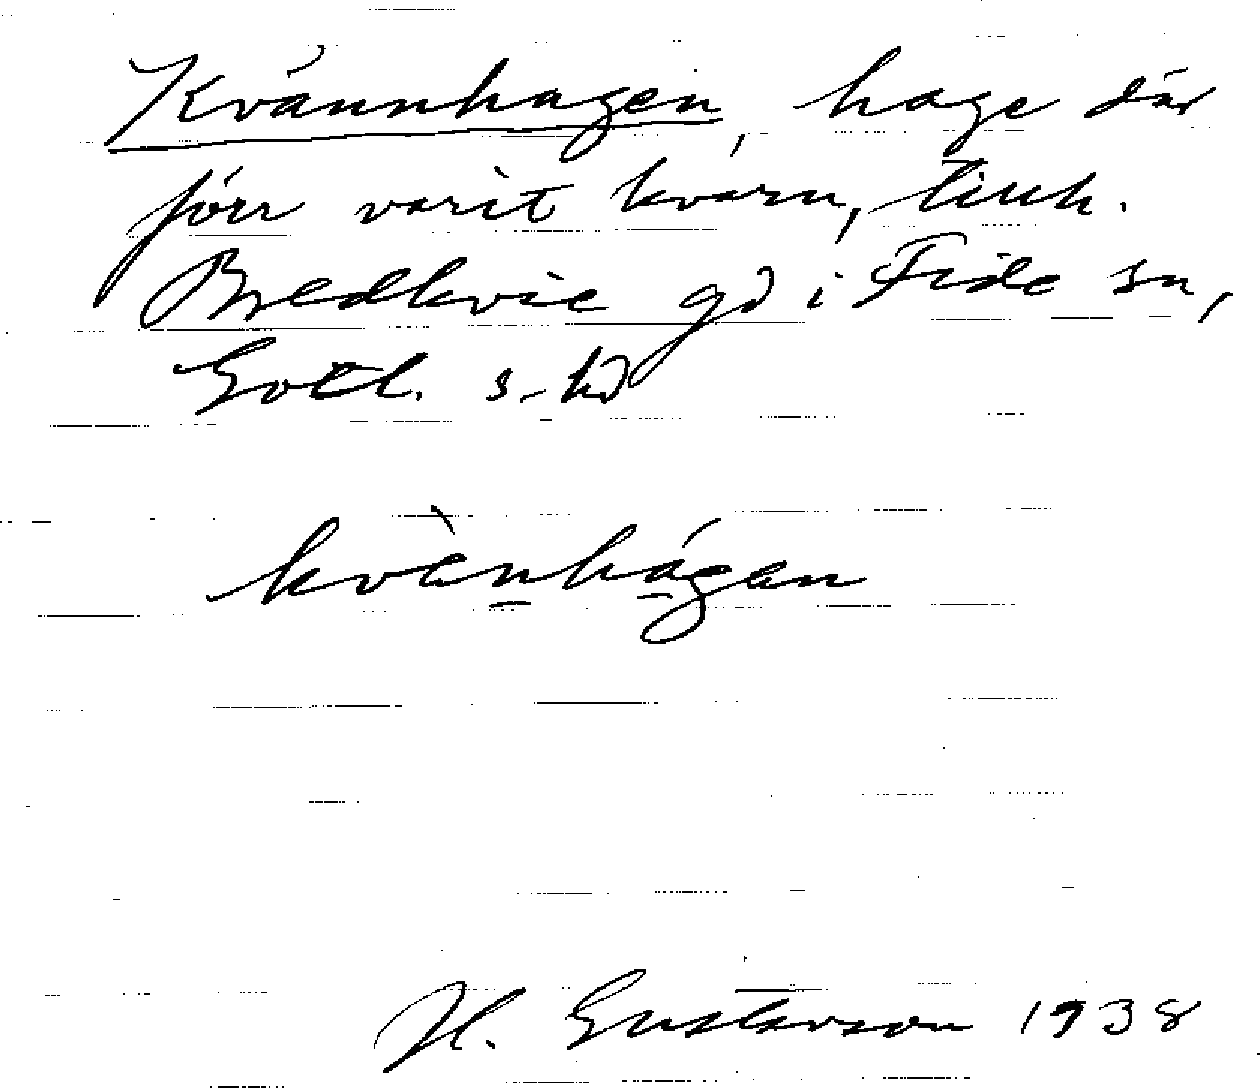 Kvánnhagen, hage där
förr varit kvarn, tillh.
Bredkvie gd i Fide sn,
Gotl. s. hd
kvànhágan
H. Gustavson 1938